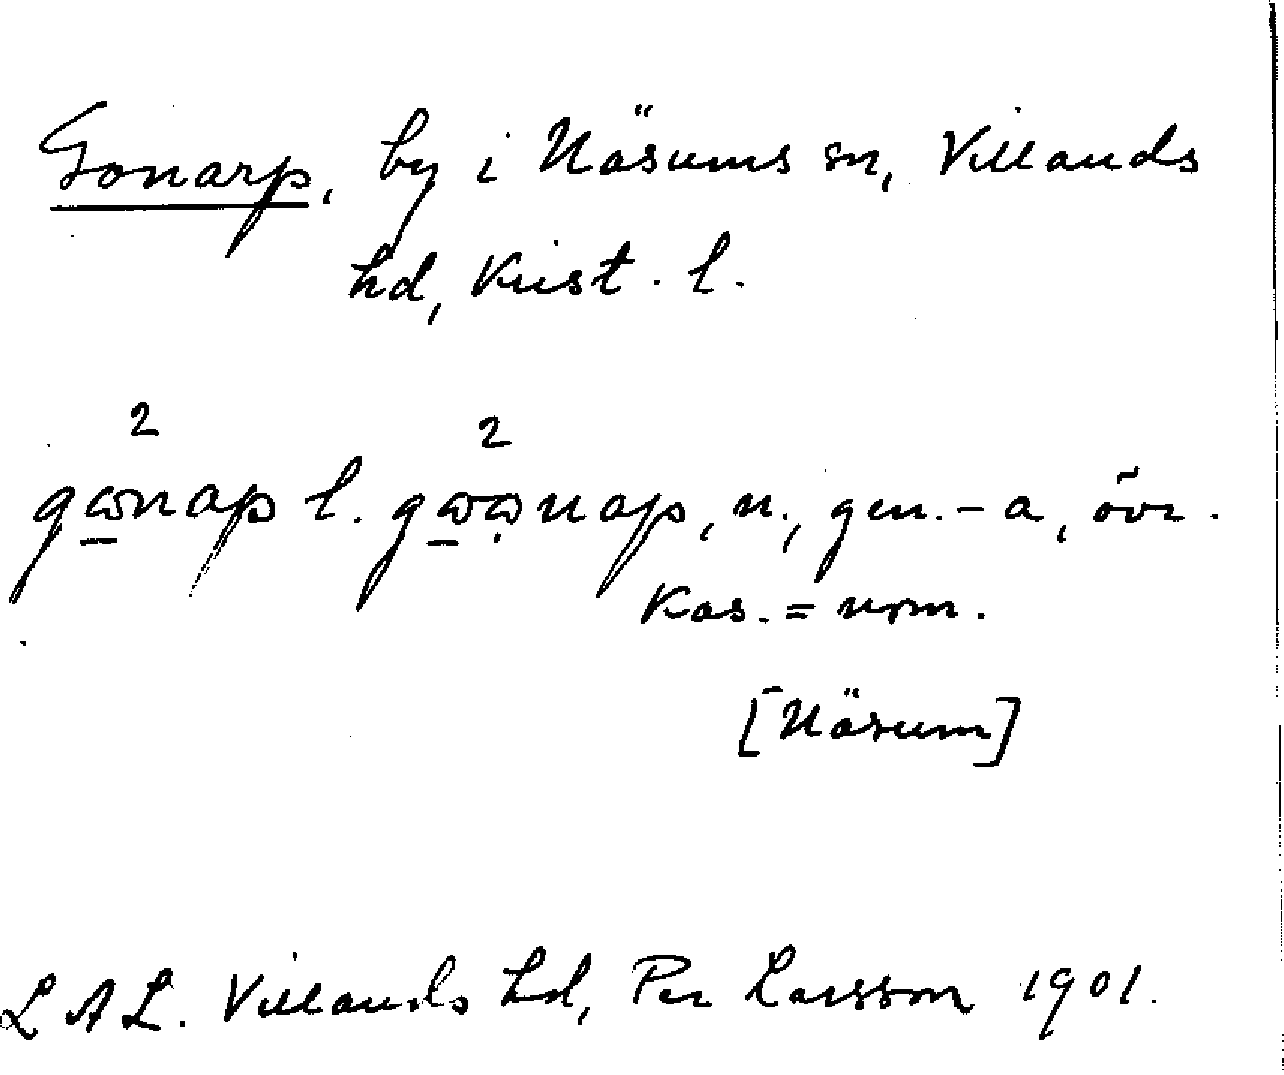 Gonarp, by i Näsums sn, Villands
hd, Krist. l.
2 2
gɷ̠nap l. gɷ̠ɷ̣nap, n., gen. -a, övr.
kas. = nom.
[Näsum]
LAL. Villands hd, Per Larsson 1901.